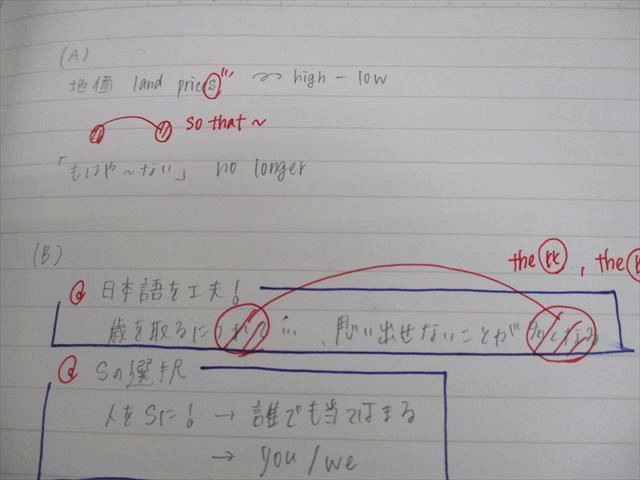 (A)
地価 land prices ~ high - low
so that ~
「もはや~ない」 no longer
(B)
the 比, the
日本語を工夫!
歳を取るにつれて…、思い出せないことが多くなる
Sの選択
人をSに! → 誰でも当てはまる
→ you/we